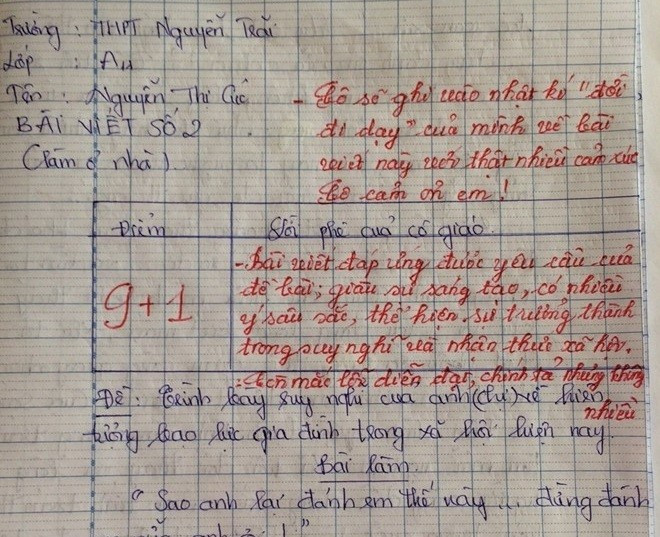 Trường : THPT Nguyễn Trãi
Lớp : A11
Tên : Nguyễn Thị Cúc
BÀI VIẾT SỐ 2
(Làm ở nhà).
- Cô sẽ ghi vào nhật kí "đời
đi dạy" của mình về bài
viết này với thật nhiều cảm xúc
Cô cảm ơn em!
Điểm
Lời phê quả cô giáo.
9+1
- Bài viết đáp ứng được yêu cầu của
đề bài; giàu sự sáng tạo, có nhiều
ý sâu sắc, thể hiện sự trưởng thành
trong suy nghĩ và nhận thức xã hội.
: Còn mắc lỗi diễn đạt, chính tả nhưng không
nhiều
Đề: Trình bày suy nghĩ của anh (chị) về hiện
tượng bạo lực gia đình trong xã hội hiện nay.
Bài làm
" Sao anh lại đánh em thế này ... đừng đánh
anh ơi ! "